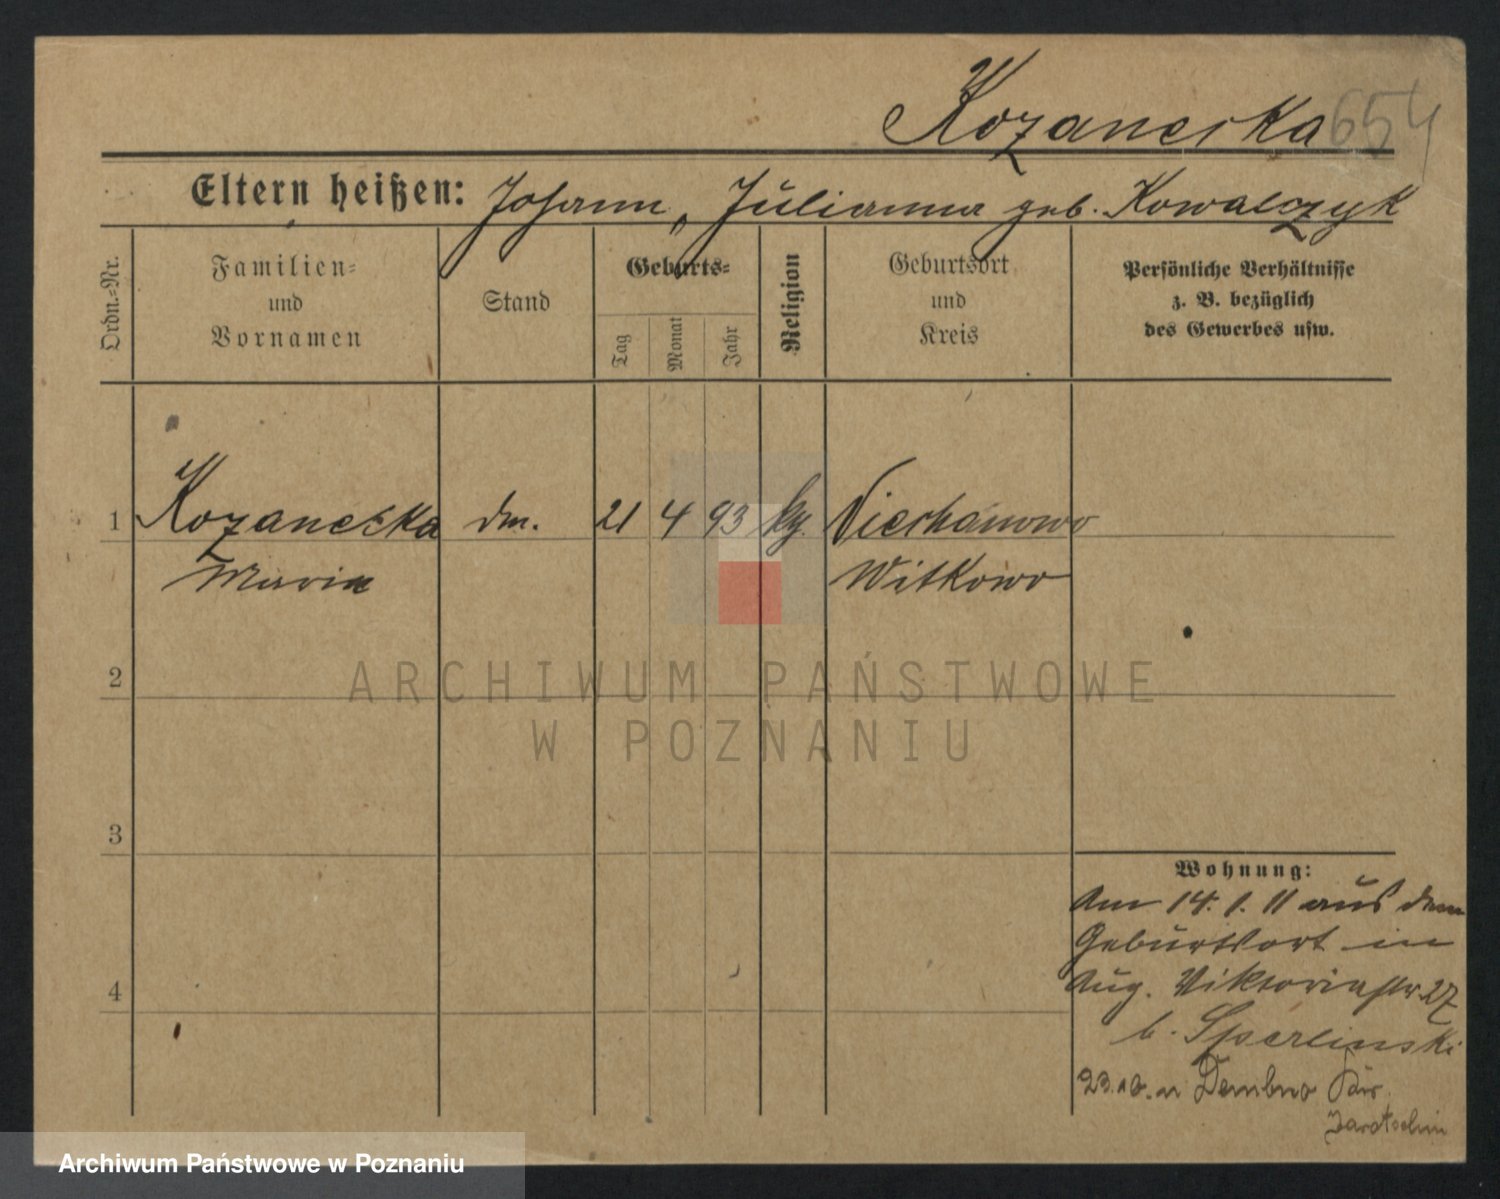 Kozanecka 654
Eltern heißen: Johann, Julianna geb. Kowalczyk
Ordn.-Nr.
Familien-
und
Vornamen
Stand
Geburts-
Tag
Monat
Jahr
Religion
Geburtsort
und
Kreis
Persönliche Verhältnisse
z. B. bezüglich
des Gewerbes usw.
1 Kozanecka dm. 21 4 93
Maria Witkowo
2
3
4
Wohnung:
Am 14. 1. 11 aus dem
Geburtsort in
Aug. Viktoriastr. 27
b. Sperlinski
23.10. Dembno
Jarotschin
ARCHIWUM PAŃSTWOWE
W POZNANIU
Archiwum Państwowe w Poznaniu